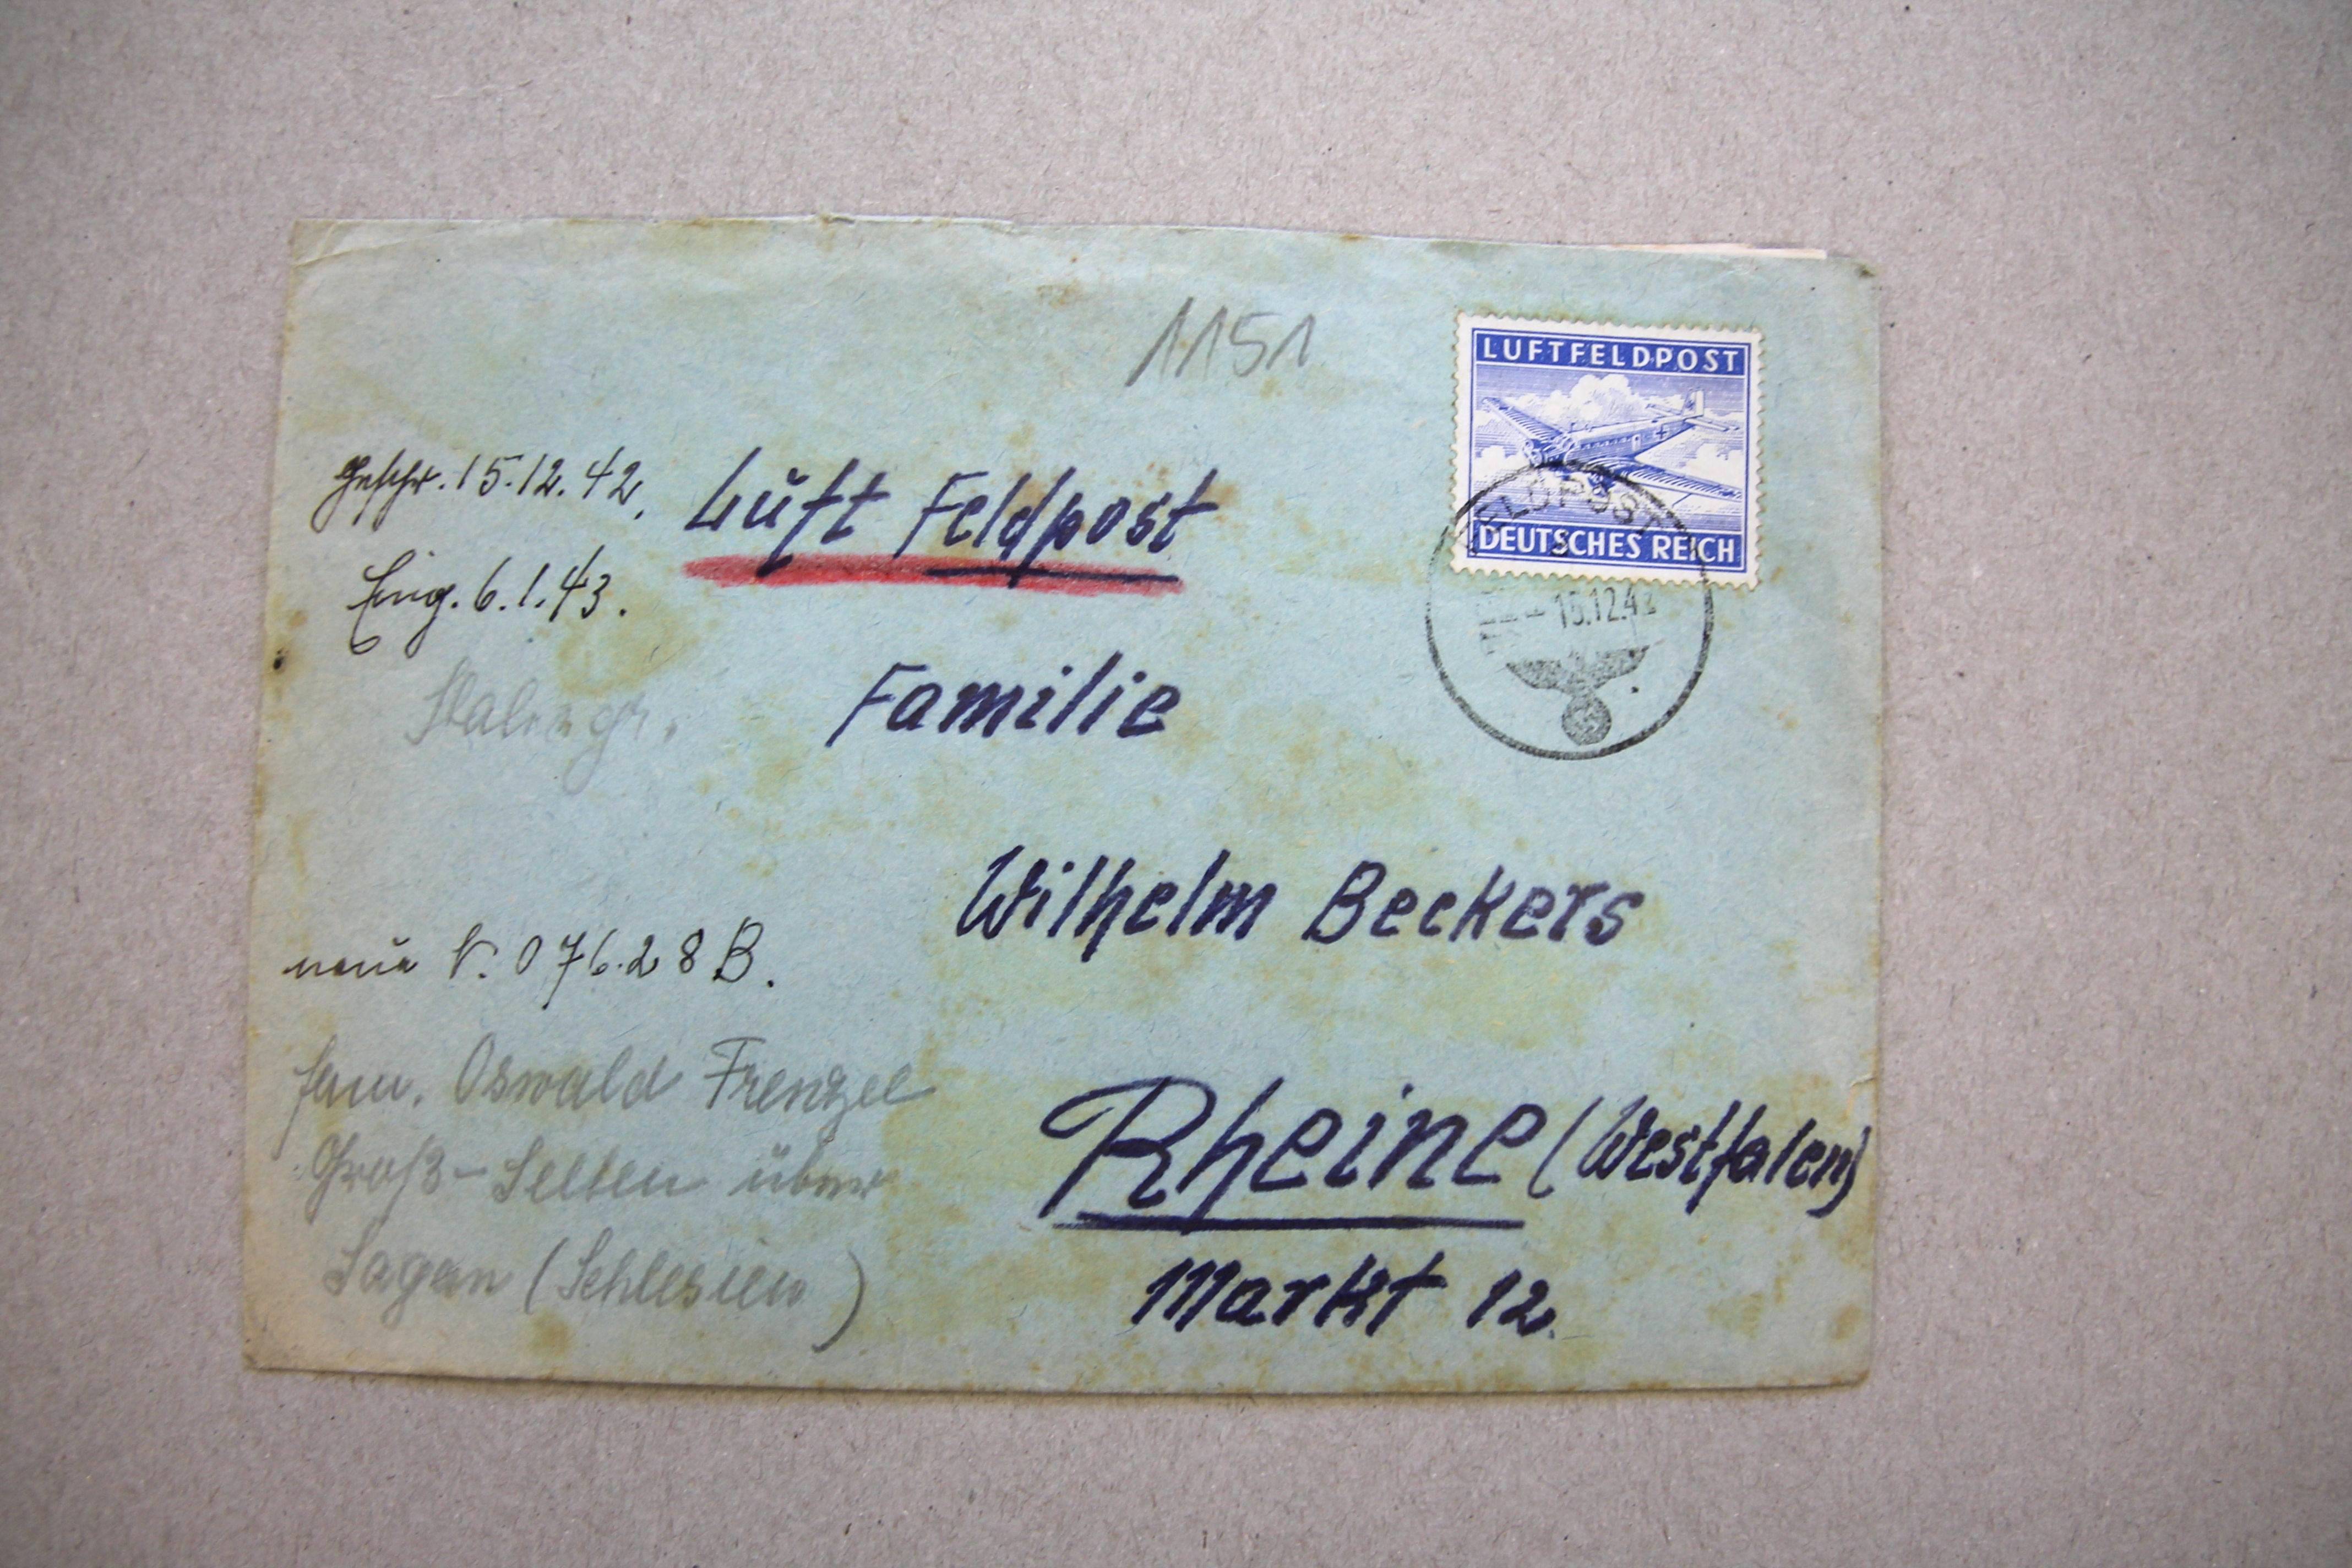 1151
LUFTFELDPOST
DEUTSCHES REICH
FELDPOST
15.12.42
Geschr. 15.12.42.
Luft Feldpost
Eing. 6.1.43.
Stalingr.
Familie
Wilhelm Beckers
neue N. 07628 B.
Rheine (Westfalen)
Markt 12.
Fam. Oswald Frenzel
Groß-Selten über
Sagan (Schlesien)